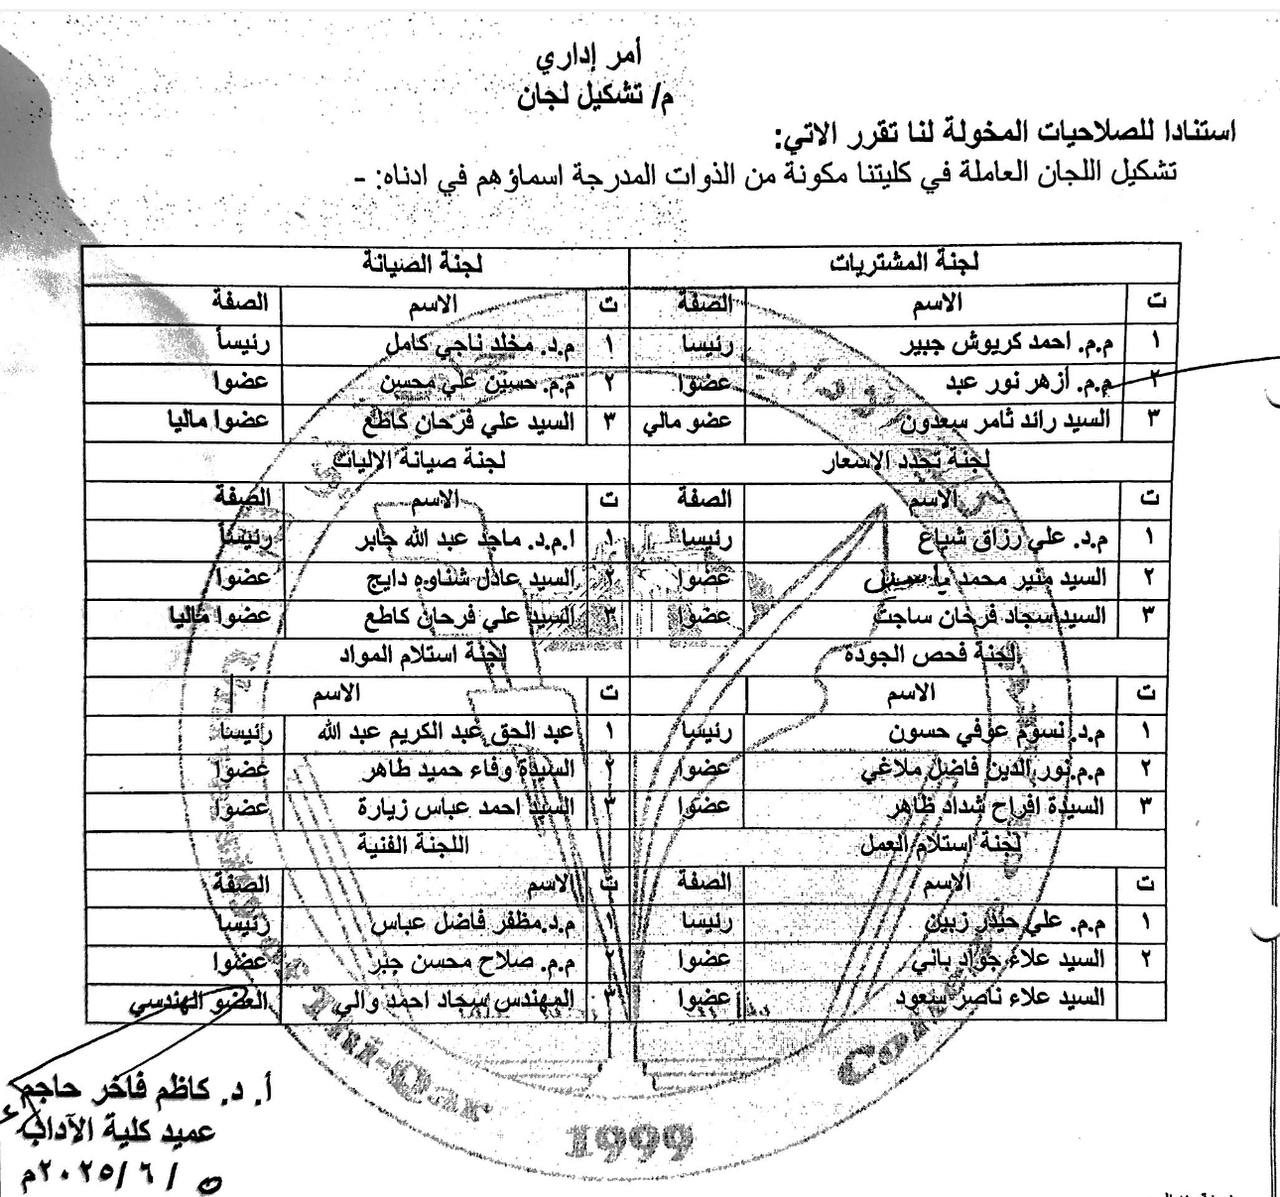 أمر إداري
م/ تشكيل لجان
استنادا للصلاحيات المخولة لنا تقرر الاتي:
تشكيل اللجان العاملة في كليتنا مكونة من الذوات المدرجة اسماؤهم في ادناه: -
لجنة المشتريات لجنة الصيانة
ت الاسم الصفة ت الاسم الصفة
١ م.م. احمد كريوش جبير رئيسا ١ م.د. مخلد ناجي كامل رئيسأ
٢ م.م. أزهر نور عبد عضوا ٢ م.م. حسين علي محسن عضوا
٣ السيد رائد ثامر سعدون عضو مالي ٣ السيد علي فرحان كاطع عضوا ماليا
لجنة تحدد الاسعار لجنة صيانة الاليات
ت الاسم الصفة ت الاسم الصفة
١ م.د. علي رزاق شياع رئيسا ١ ا.م.د. ماجد عبد الله جابر رئيسأ
٢ السيد منير محمد عضوا ٢ السيد عادل شناوه دايج عضوا
٣ السيد سجاد فرحان ساجت عضوا ٣ السيد علي فرحان كاطع عضوا ماليا
لجنة فحص الجودة لجنة استلام المواد
ت الاسم ت الاسم
١ م.د. نسوم عوفي حسون رئيسا ١ عبد الحق عبد الكريم عبد الله رئيسا
٢ م.م.نور الدين فاضل ملاغي عضوا ٢ السيدة وفاء حميد طاهر عضوا
٣ السيدة افراح شداد ظاهر عضوا ٣ السيد احمد عباس زيارة عضوا
لجنة استلام العمل اللجنة الفنية
ت الاسم الصفة ت الاسم الصفة
١ م.م. علي حيدر زبين رئيسا ١ م.د.مظفر فاضل عباس رئيسا
٢ السيد علاء جواد باني عضوا ٢ م.م. صلاح محسن جبر عضوا
السيد علاء ناصر سعود عضوا ٣ المهندس سجاد احمد والي العضو الهندسي
أ. د. كاظم فاخر حاجم
عميد كلية الآداب
٥ / ٦ /٢٠٢٥م
Thi-Qar
1999